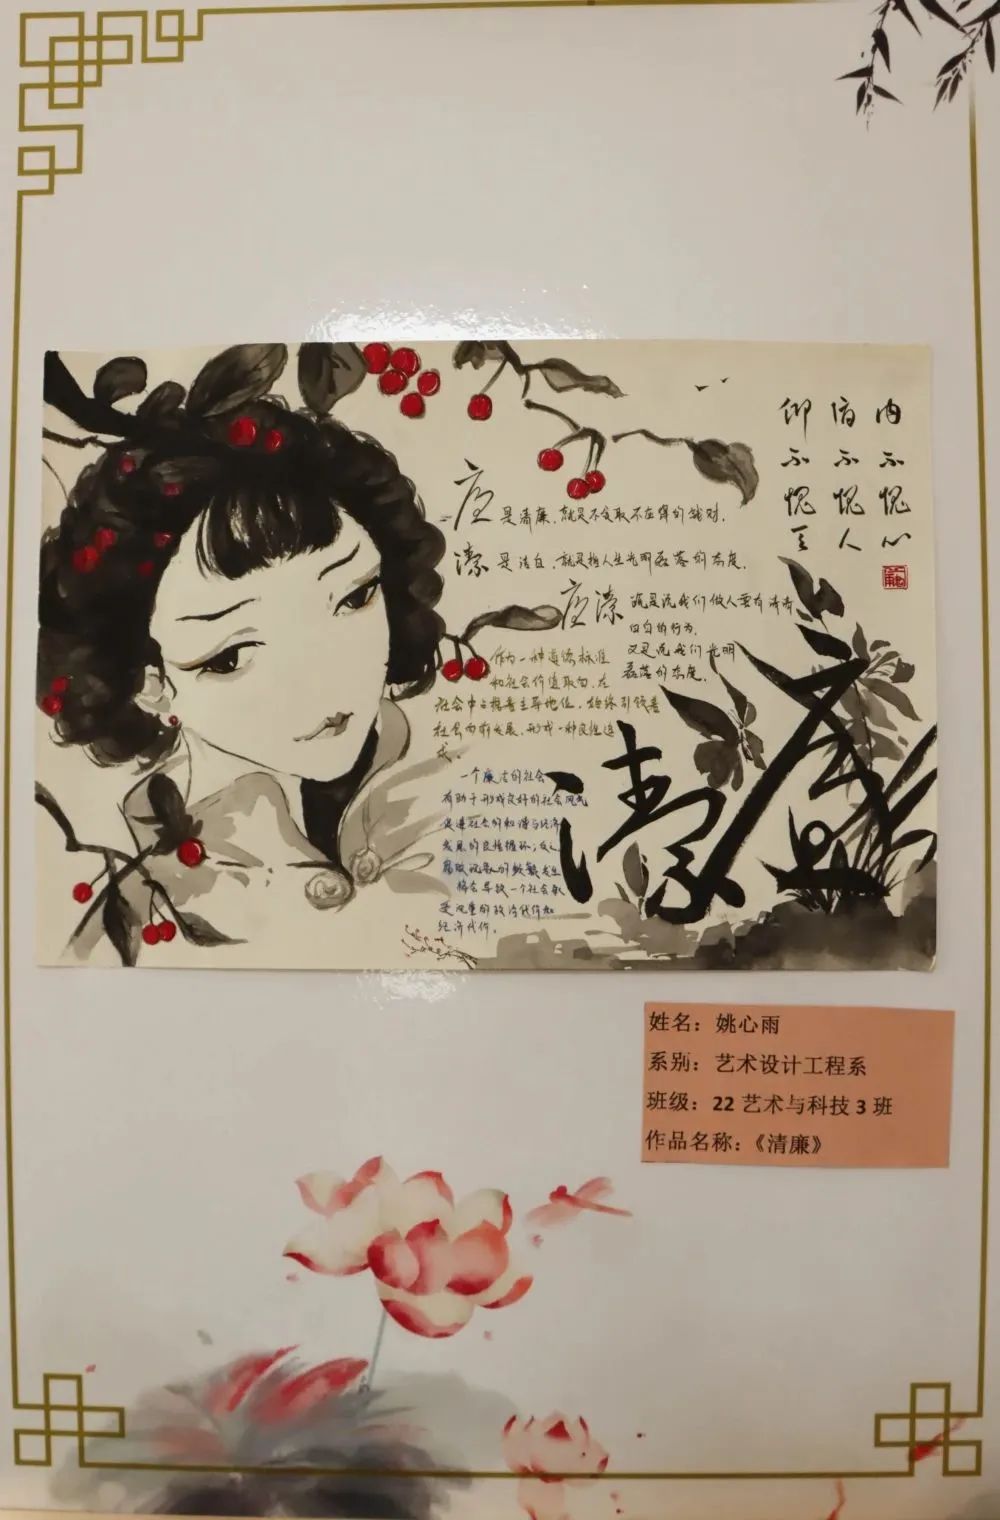 仰不愧天
俯不愧人
内不愧心
廉是清廉，就是不贪取不应得的钱财，
潔是洁白，就是指人生光明磊落的态度。
廉潔就是说我们做人要有清清
白白的行为，
又是说我们光明
磊落的态度。
作为一种道德标准
和社会价值取向，在
社会中占据着主导地位，始终引领着
社会向前发展，形成一种良性
一个廉洁的社会
有助于形成良好的社会风气
促进社会的和谐与经济
发展的良性循环；反之
腐败现象的频繁发生
将会导致一个社会承
受沉重的政治代价和
经济代价。
廉
潔
姓名：姚心雨
系别：艺术设计工程系
班级：22 艺术与科技 3 班
作品名称：《清廉》